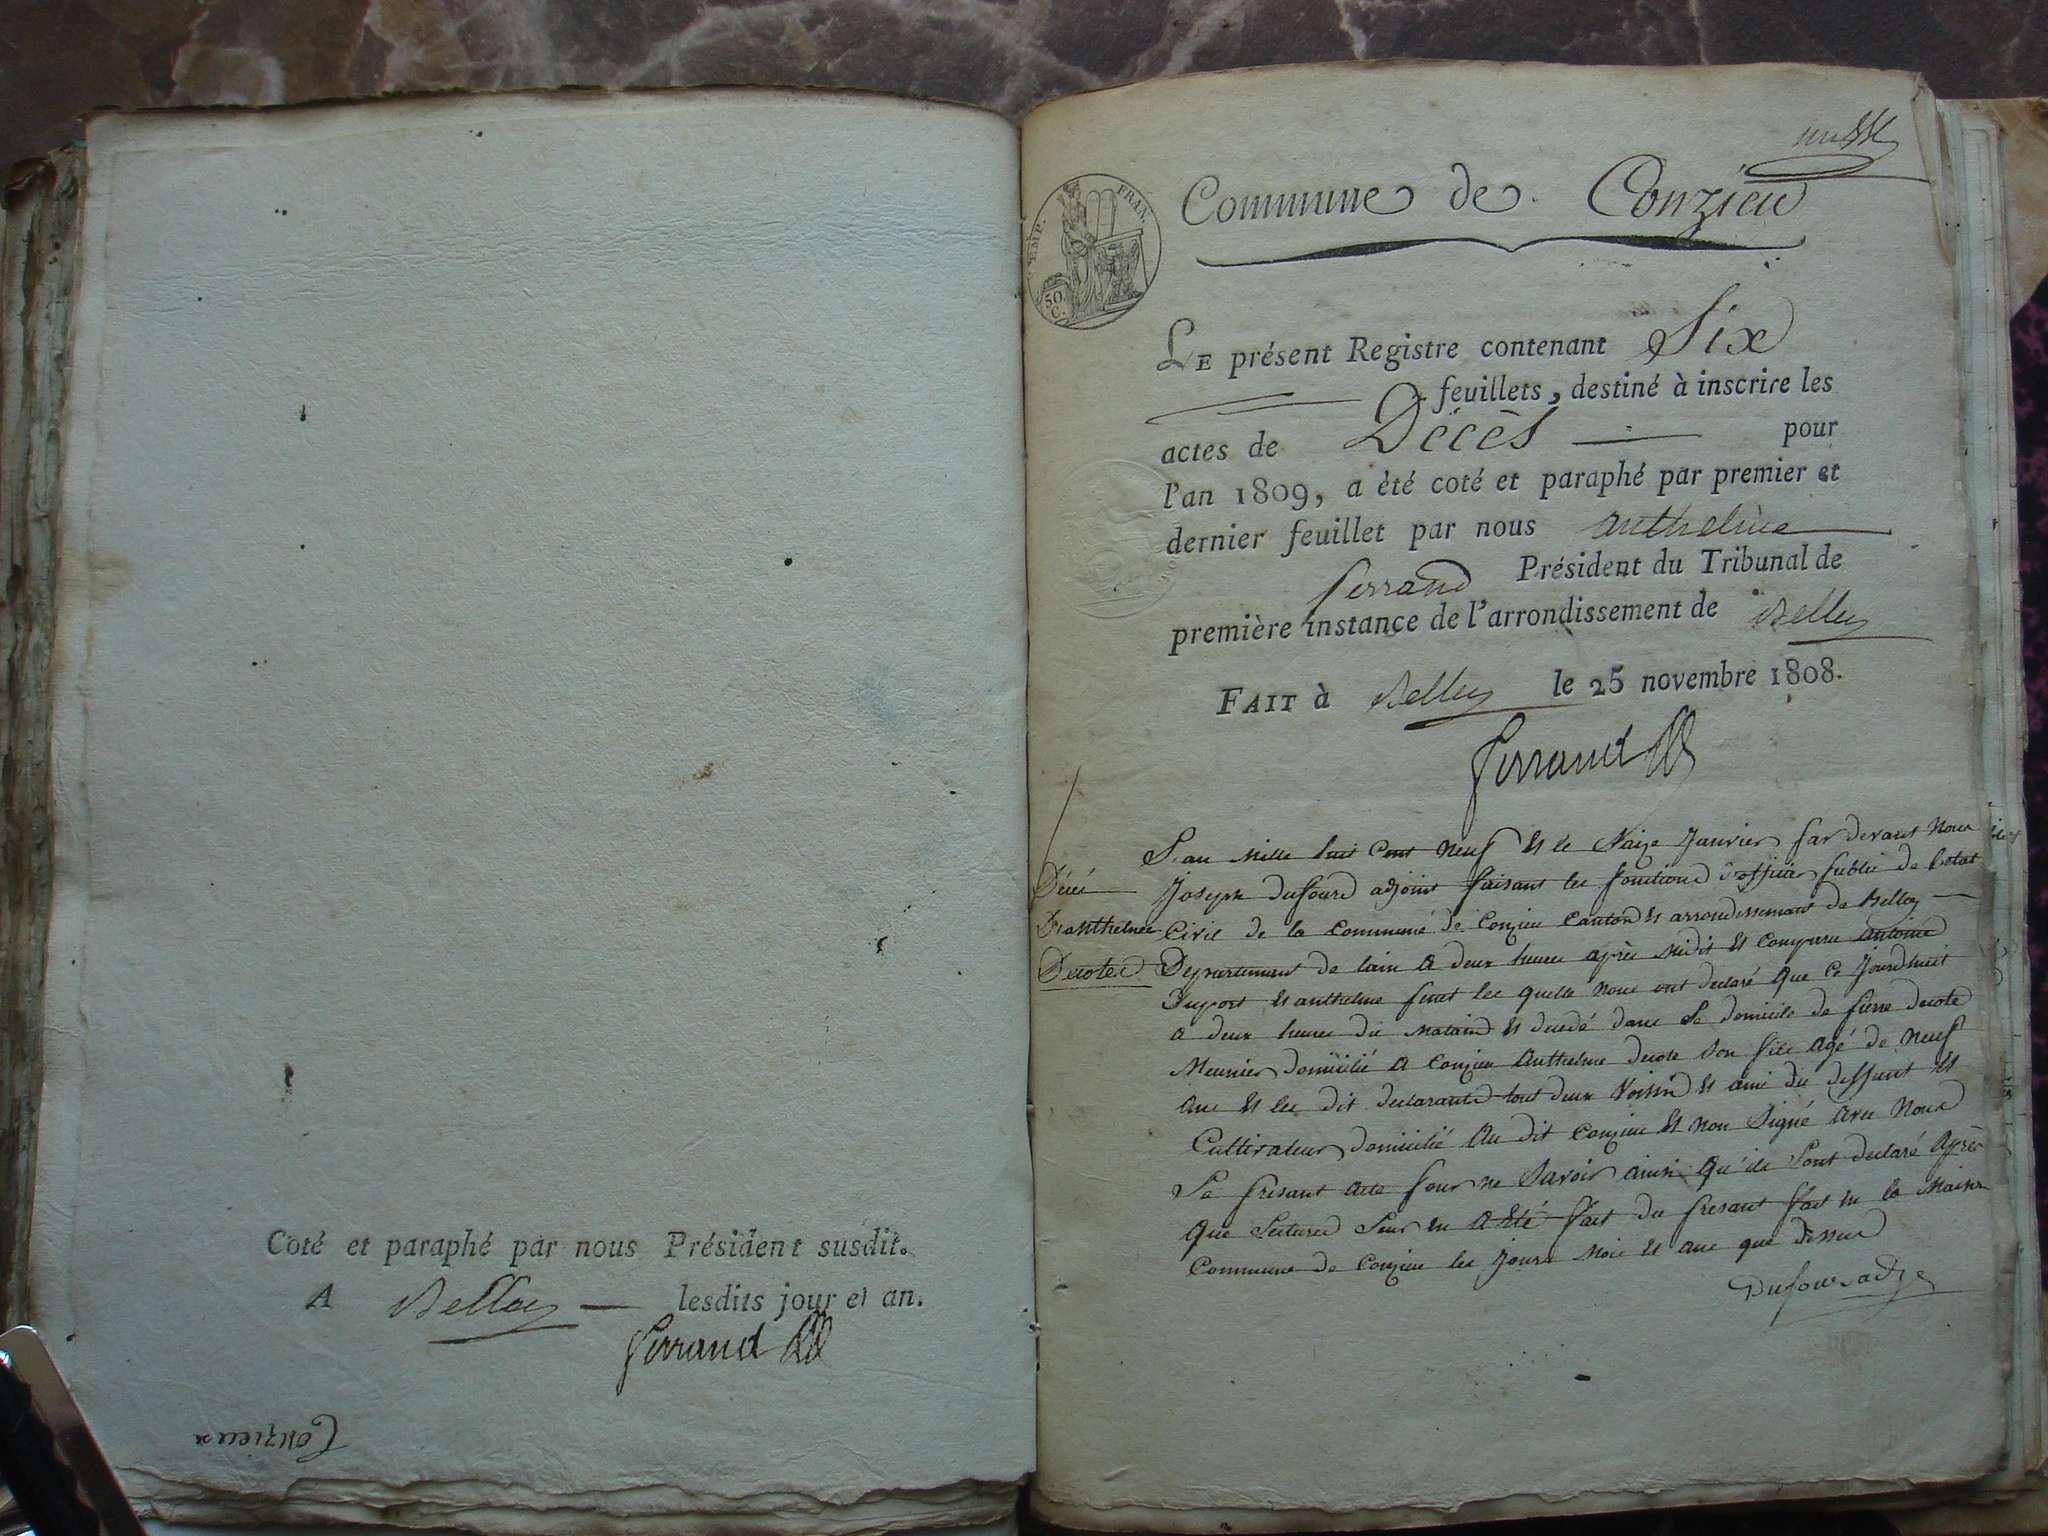 Coté et paraphé par nous Président susdit.
A Belley lesdits jour et an.
Ferrand
Conzieux
un
Commune de Conzieu
EMP. FRAN.
50 C.
LE présent Registre contenant Six
feuillets, destiné à inscrire les
actes de Décès pour
l'an 1809, a été coté et paraphé par premier et
dernier feuillet par nous Anthelme
ferrand Président du Tribunal de
première instance de l'arrondissement de Belley
FAIT à Belley le 25 novembre 1808.
Ferrand
Décé
D'anthelme
Decote
L'an Mille huit Cent Neuf Et le Saize Janvier par devant Nous
Joseph dufour adjoint faisant les fonctions d'officier public de l'etat
Civil de la Commune de Conzieu Canton Et arrondissement de Belley
Departement de lain a deux heures après Midit Et Comparu antoine
Duport Et anthelme les quelle Nous ont declaré que ce Jourdhuit
a deux heures du Matain Et decedé dans Le domicile de pierre decote
Meunier domicilié a Conzieu Anthelme decote Son fils agé de Neuf
ans Et les dit declarants tout deux Voisin Et ami du deffunt Et
Cultivateur domicilié Au dit Conzieu Et Non Signé avec Nous
Le presant acte pour ne Savoir ainsi qu'ils Sont declaré Après
que Lecture Leur en a Eté fait du presant fait en la Maison
Commune de Conzieu les Jours Mois Et ans que dessus
Dufour adj